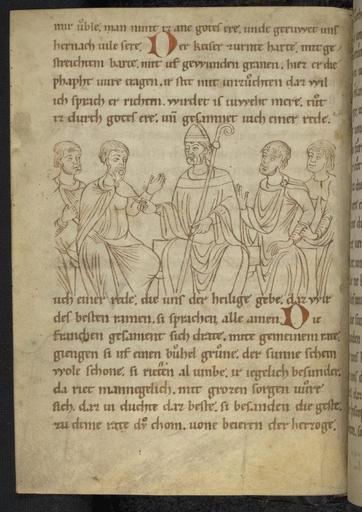 mir úble. man nimt iz ane gotes ere. unde geruwet uns
hernach uile sere. Der keiser zurnte harte. mit ge
streichtem barte. mit uf gewunden granen. hiez er die
phapht uure tragen. ir stet mit unzůchten. daz wil
ich sprach er richten. wirdet is iuweht mere. tůt
iz durch gotes ere. uñ gesamnet iuch einer rede.
uch einer rede. die uns der heilige gebe. daz wir
des besten ramen. si sprachen alle amen. Die
franchen gesament sich drate. mite gemeinem rate
giengen si uf einen bůhel grůne. der sunne schein
wole schone. si rieten al umbe. ir iegelich besunder
da riet mannegelich. mit grozen sorgen
sich. daz in duchte daz beste. si besanden die geste.
zu deme rate dů chom. uone beieren der herzoge.